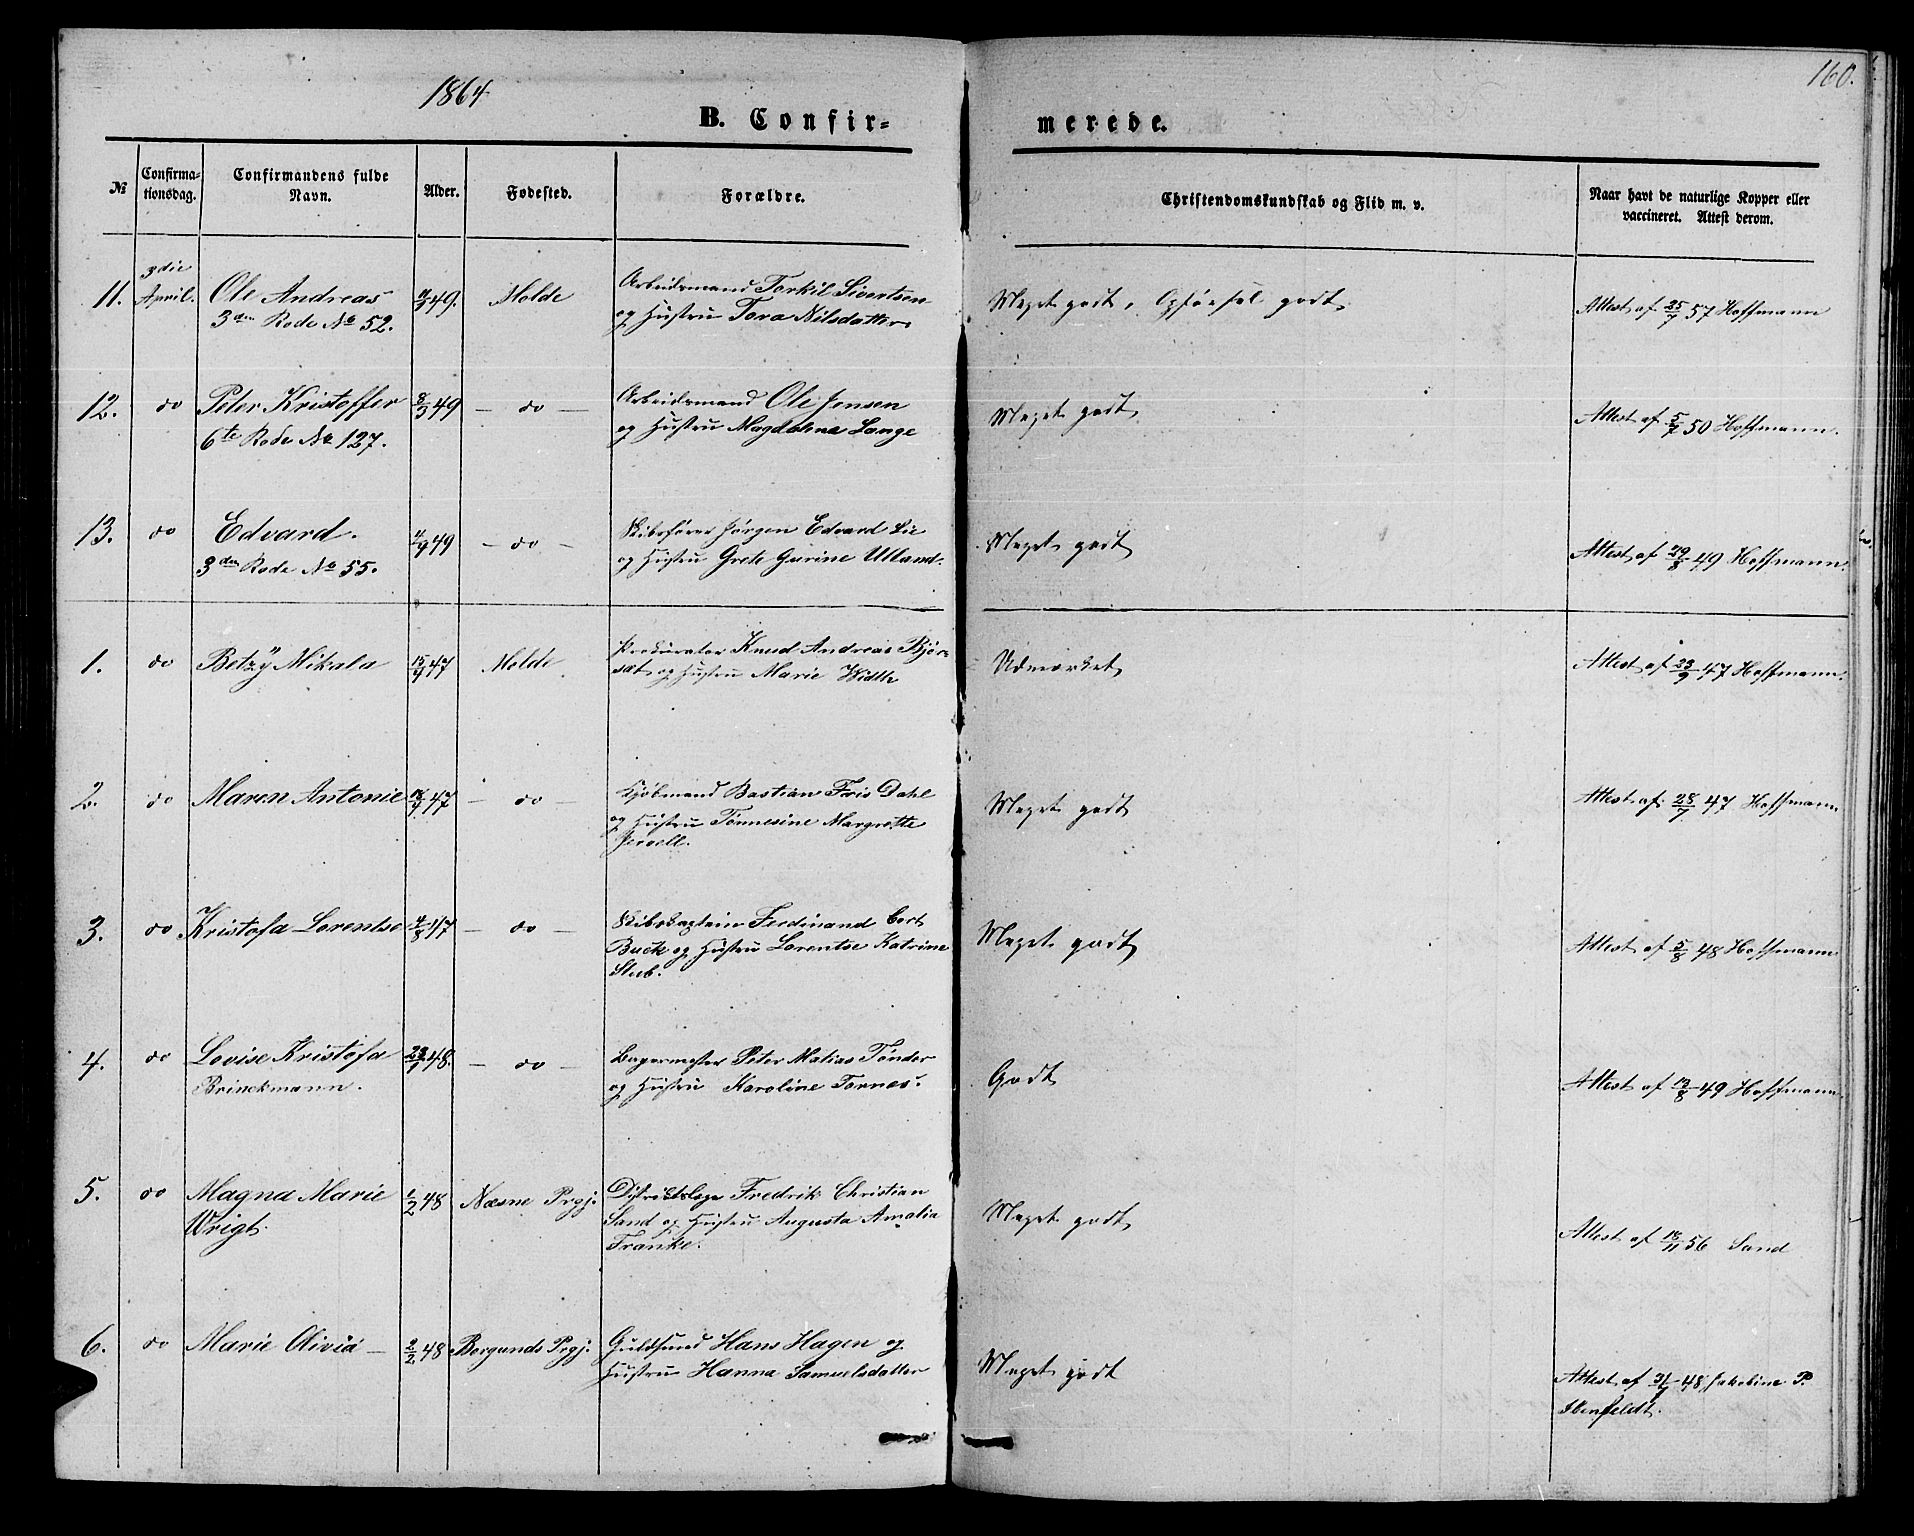 1864
160.
B. Confir-
merede.
№
Confirma-
tionsdag.
Confirmandens fulde
Navn.
Alder.
Fødested.
Forældre.
Christendomskundskab og Flid m. v.
Naar havt de naturlige Kopper eller
vaccineret. Attest derom.
11.
3die
April.
Ole Andreas
3den Rode No 52.
49.
Molde
Arbeidsmand Torkil Sivertsen
og Hustru Tora Nilsdatter
Meget godt, Opførsel godt.
Attest af 25/7 57 Hoffmann
12.
do
Peter Kristoffer
6te Rode No 127.
8/9 49
— do —
Arbeidsmand Ole Jensen
og Hustru Magdalena Lange
Meget godt
Attest af 5/7 50 Hoffmann.
13.
do
Edvard.
3den Rode No 55.
4/9 49
— do —
Skibsfører Jørgen Edvard Lie
og Hustru Grete Gurine Ulland.
Meget godt
Attest af 29/8 49 Hoffmann.
1.
do
Betzÿ Mikala
15/9 47
Molde
Prokurator Knud Andreas Bjør-
sæt og Hustru Marie Width
Udmærket
Attest af 23/9 47 Hoffmann.
2.
do
Maren Antonie
47
— do —
Kjøbmand Bastian Fris Dahl
og Hustru Tönnesine Margrette
Jervell.
Meget godt
Attest af 28/7 47 Hoffmann
3.
do
Kristofa Lorentse
4/8 47
— do —
Skibskaptein Ferdinand Cort
Buck og Hustru Lorentse Katrine
Stub.
Meget godt
Attest af 5/8 48 Hoffmann
4.
do
Lovise Kristofa
Brinckmann.
48.
— do —
Bagermester Peter Matias Tönder
og Hustru Karoline Tornes.
Godt
Attest af 12/8 49 Hoffmann
5.
do
Magna Marie
Wrigt.
1/2 48
Næsne Prgj.
Distriktslæge Fredrik Christian
Sand og Hustru Augusta Amalia
Franke.
Meget godt
Attest af 18/11 56 Sand
6.
do
Marie Olivia —
2/2 48
Borgunds Prgj.
Guldsmed Hans Hagen og
Hustru Hanna Samuelsdatter
Meget godt
Attest af 48 Jakobine P.
Ibenfeldt.